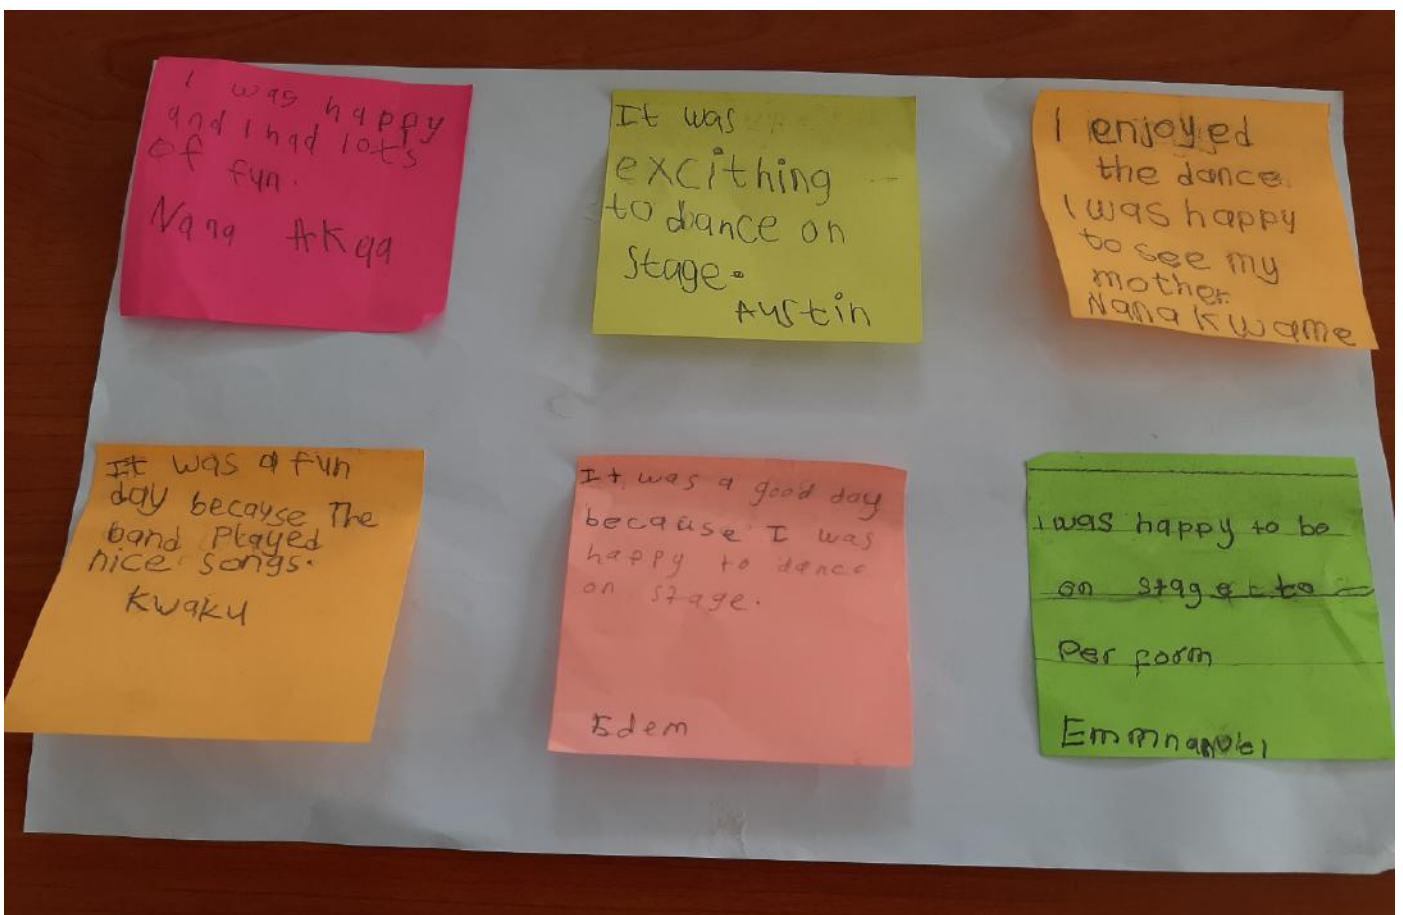 I was happy
and I had lots
of fun.
Nana AKqa
It was
excithing
to dance on
stage.
Austin
I enjoyed
the dance.
I was happy
to see my
mother.
Nana Kwame
It was a fun
day because The
band Played
nice songs.
Kwaku
It was a good day
because I was
happy to dance
on stage.
Edem
I was happy to be
on stage to
Per form